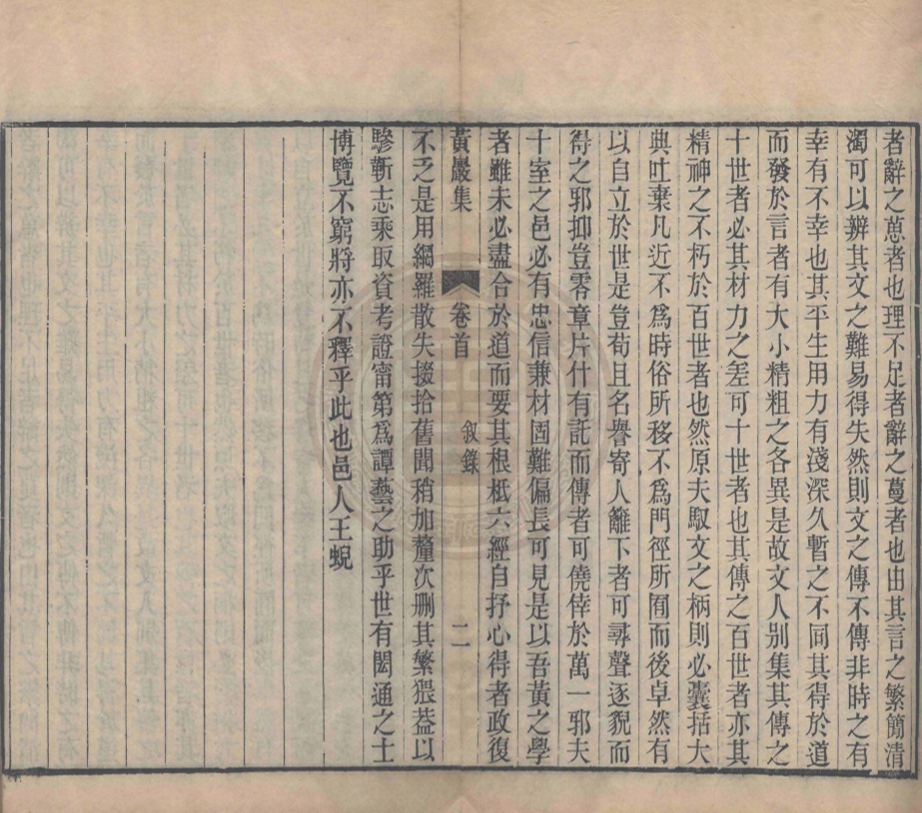 者辭之蒠者也理不足者辭之蔓者也由其言之繁簡清
濁可以辨其文之難易得失然則文之傳不傳非時之有
幸有不幸也其平生用力有淺深久暫之不同其得於道
而發於言者有大小精粗之各異是故文人别集其傳之
十世者必其材力之差可十世者也其傳之百世者亦其
精神之不朽於百世者也然原夫馭文之柄則必囊括大
典吐棄凡近不為時俗所移不為門徑所囿而後卓然有
以自立於世是豈苟且名譽寄人籬下者可尋聲逐貌而
得之邪抑豈零章片什有託而傳者可僥倖於萬一邪夫
十室之邑必有忠信兼材固難偏長可見是以吾黃之學
者雖未必盡合於道而要其根柢六經自抒心得者政復
黃巖集 卷首 叙錄 二
不乏是用網羅散失掇拾舊聞稍加釐次删其繁猥葢以
驂靳志乘取資考證甯第為譚藝之助乎世有閎通之士
博覽不窮將亦不釋乎此也邑人王蜺